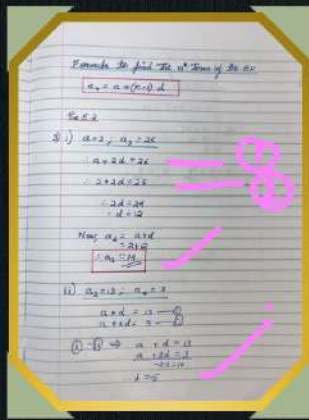 Formula to find the nth term of the AP.
aₙ = a + (n-1) d
Ex 5.2
3) i) a=2; a₃ = 26
∴ a + 2d = 26
∴ 2 + 2d = 26
∴ 2d = 24
∴ d = 12
Now, a₂ = a+d
= 2+12
∴ a₂ = 14
ii) a₂ = 13; a₄ = 3
a + d = 13
a + 3d = 3
a + d = 13
a + 3d = 3
-2d = 10